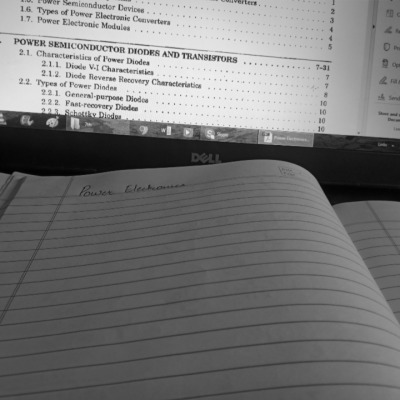 1.5. Power Semiconductor Devices . . . . 2
1.6. Types of Power Electronic Converters . . . . 3
1.7. Power Electronic Modules . . . . 4
POWER SEMICONDUCTOR DIODES AND TRANSISTORS . . . . 7–31
2.1. Characteristics of Power Diodes . . . . 7
2.1.1. Diode V-I Characteristics . . . . 7
2.1.2. Diode Reverse Recovery Characteristics . . . . 8
2.2. Types of Power Diodes . . . . 10
2.2.1. General-purpose Diodes . . . . 10
2.2.2. Fast-recovery Diodes . . . . 10
2.2.3. Schottky Diodes . . . . 10
DELL
Power Electronics